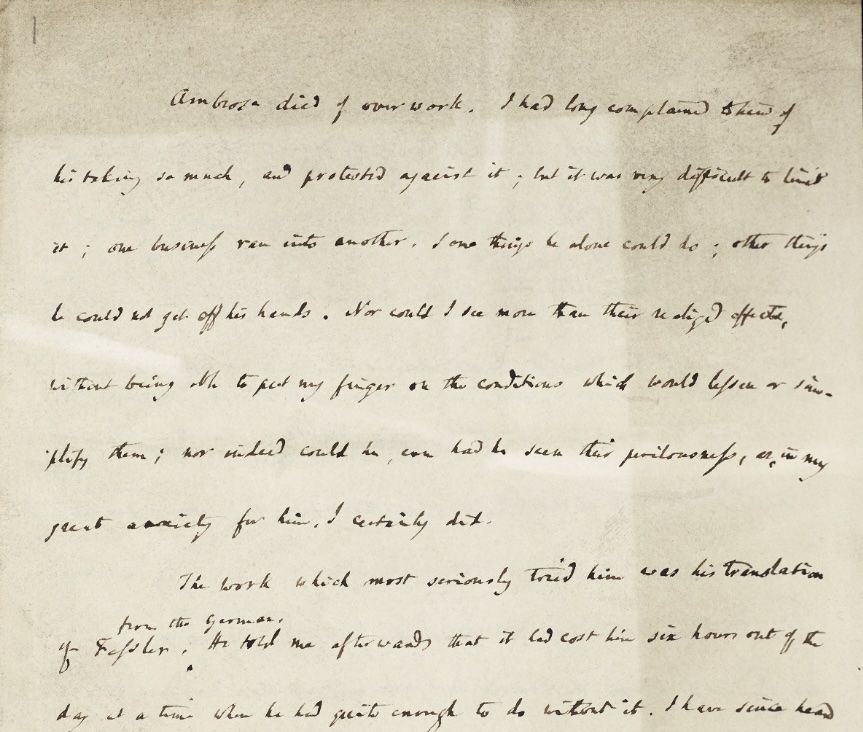 Ambrose died of over work. I had long complained to him of
his taking so much, and protested against it; but it was very difficult to limit
it; one business ran into another. Some things he alone could do; other things
he could not get off his hands. Nor could I see more than their realized effects,
without being able to put my finger on the conditions which would lessen or sim-
plify them; nor indeed could he, even had he seen their perilousness, as, in my
great anxiety for him, I certainly did.
The work which most seriously tried him was his translation
from the German.
of Fessler. He told me afterwards that it had cost him six hours out of the
day at a time when he had quite enough to do without it. I have since heard